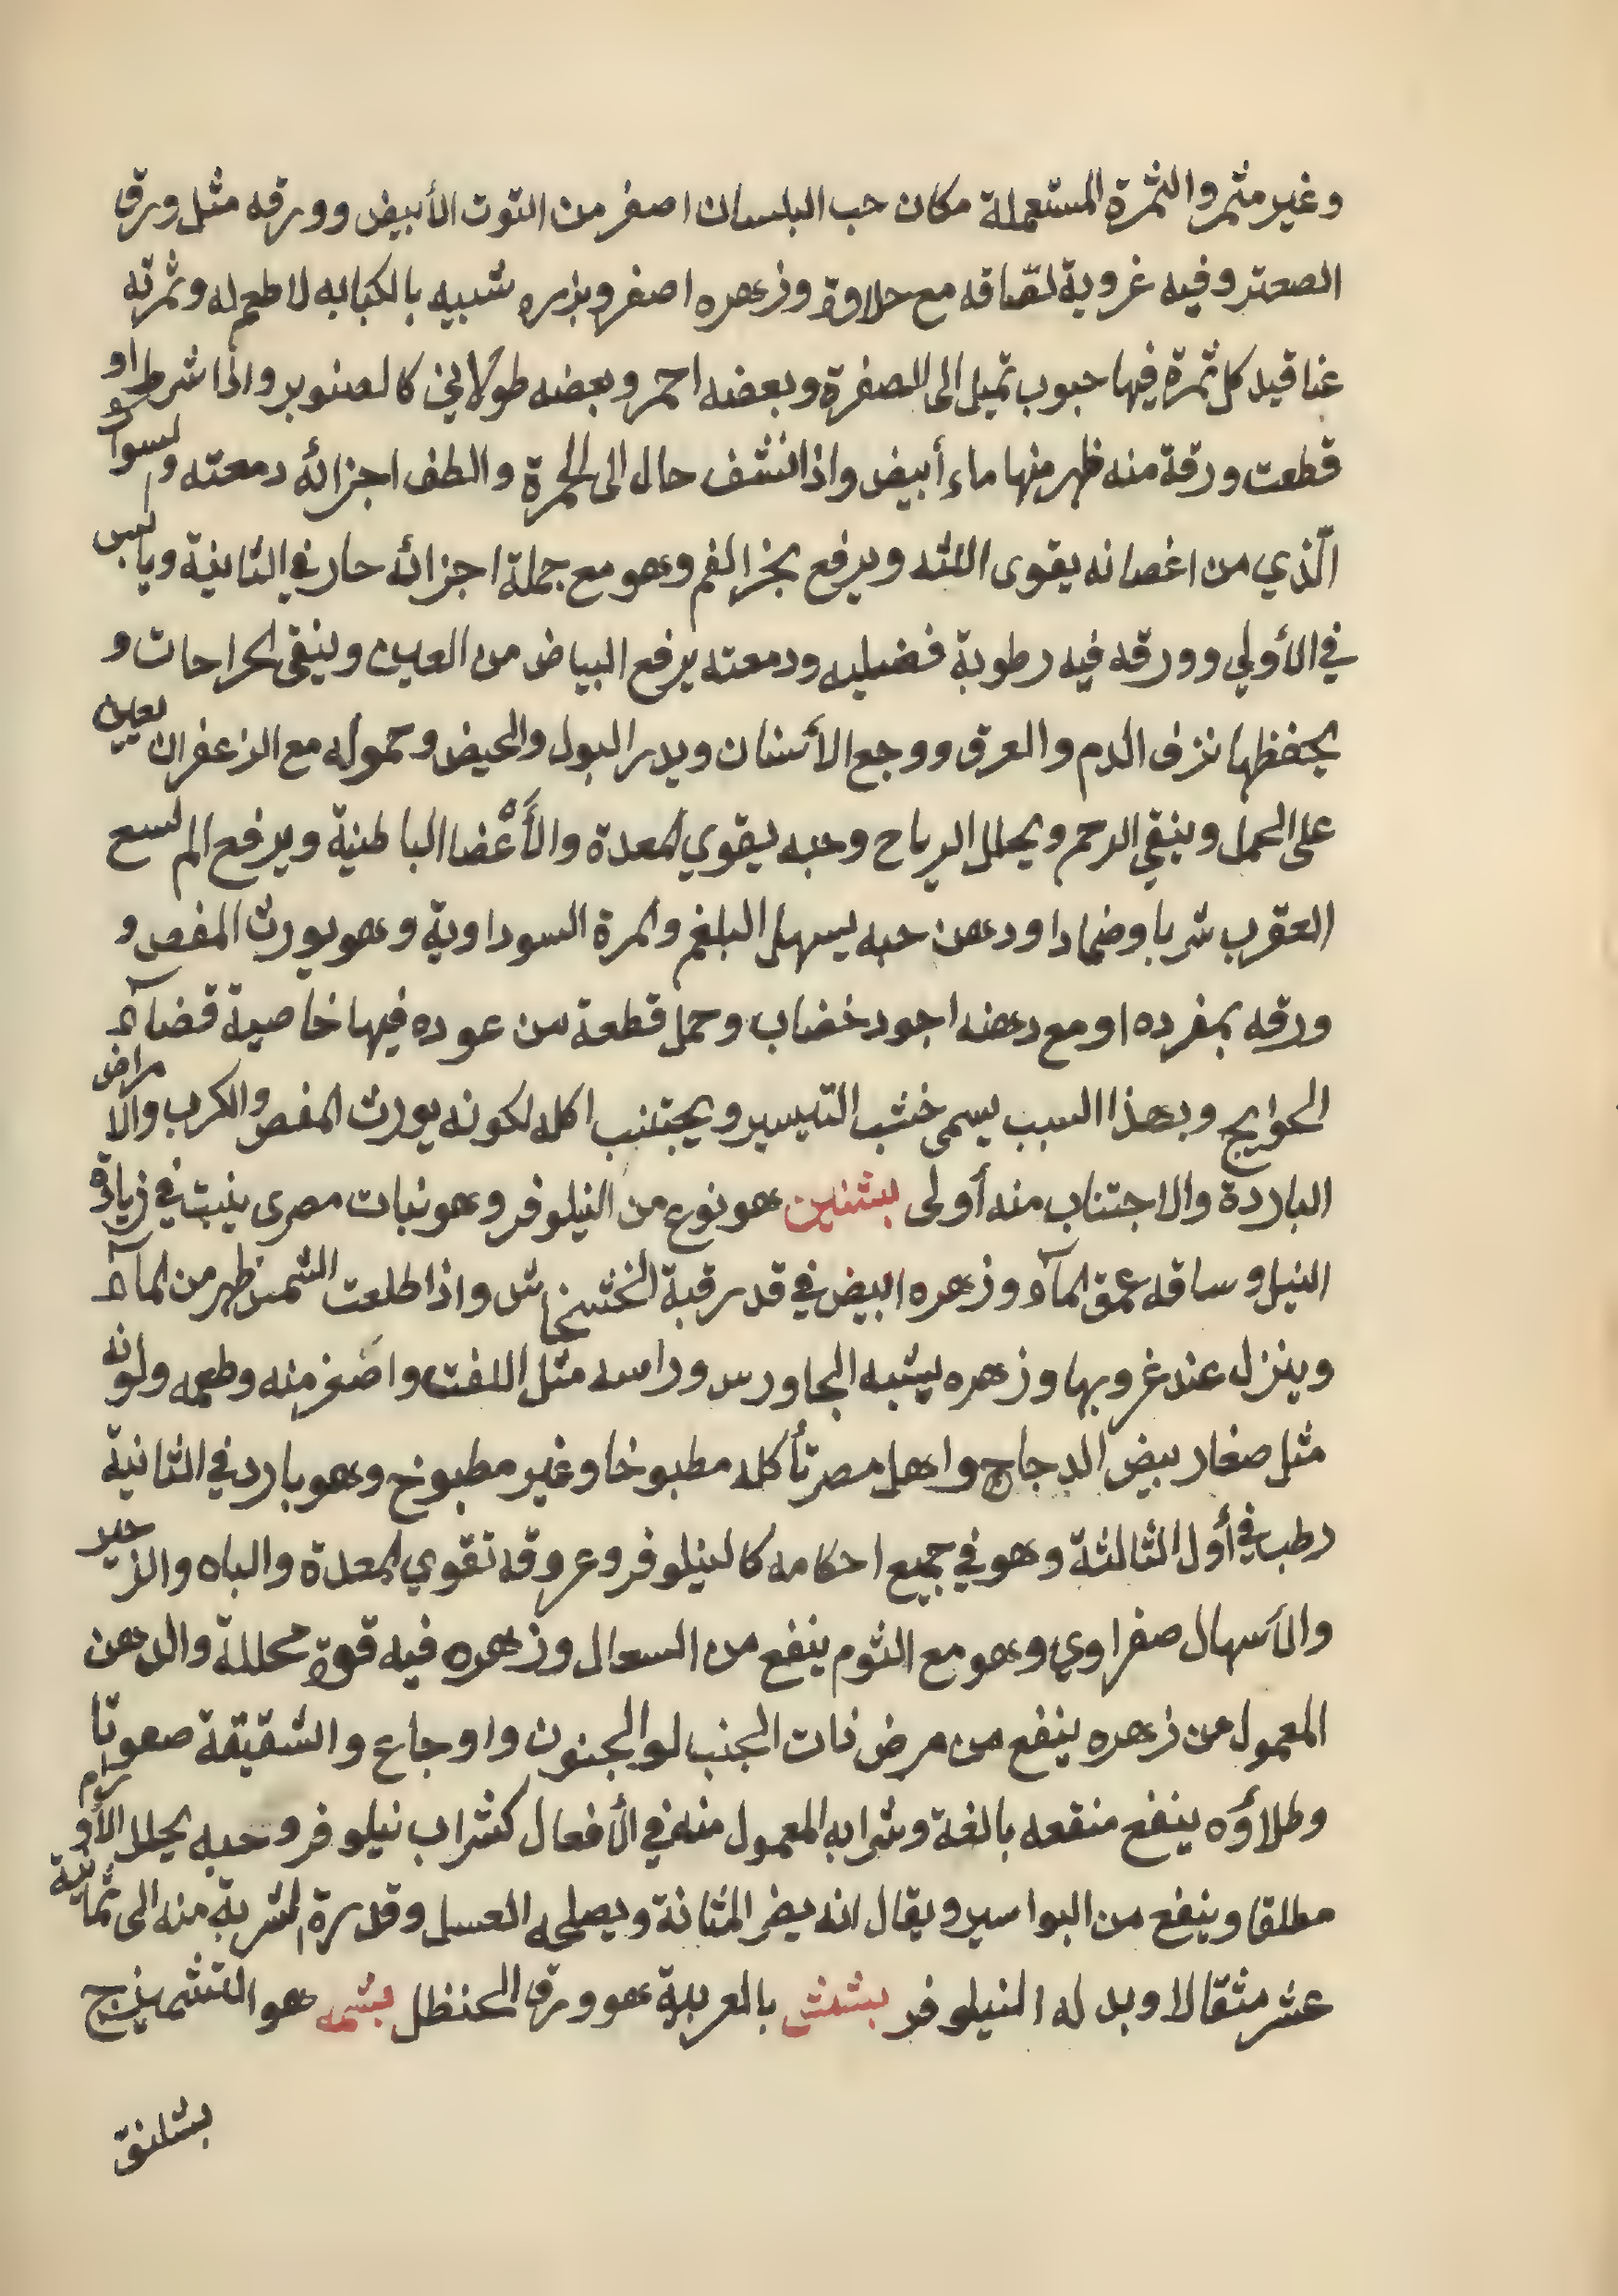 وغير مثمر والثمرة المستعملة مكان حب البلسان اصفر من التوت الأبيض وورقه مثل ورق
الصعتر وفيه غروية لصّاقه مع حلاوة وزهره اصفر وبزره شبيه بالكبابه لا طعم له وثمرته
عناقيد كل ثمرة فيها حبوب تميل الى الصفرة وبعضه احمر وبعضه طولاني كالصنوبر واذا شرط او
قطعت ورقة منه ظهر منها ماء أبيض واذا نشف حال الى الحمرة والطف اجزائه دمعته و
الّذي من اغصانه يقوى اللثه ويرفع بخر الفم وهو مع جملة اجزائه حار في الثانية ويابس
في الأولي وورقه فيه رطوبة فضليه ودمعته يرفع البياض من العين وينقى الجراحات و
يحفظها نزف الدم والعرق ووجع الأسنان ويدر البول والحيض وحموله مع الزعفران يعين
على الحمل وينقي الرحم ويحلل الرياح وحبه يقوي المعدة والأعْضا الباطنية ويرفع الم لسع
العقرب شربا وضمادا ودهن حبه يسهل البلغم والمرة السوداوية وهو يورث المغص و
ورقه بمفرده او مع دهنه اجود خضاب وحمل قطعة من عوده فيها خاصية قضآء
الحوايج وبهذا السبب يسمى خشب التيسير ويجتنب اكله لكونه يورث المغص والكرب والامراض
الباردة والاجتناب منه أولى بشنين هو نوع من النيلوفر وهو نبات مصرى ينبت في زيادة
النيل وساقه عمق المآء وزهره ابيض في قد رقبة الخشخاش واذا طلعت الشمس ظهر من المآء
وينزل عند غروبها وزهره يشبه الجاورس وراسه مثل اللفت واصغر منه وطعمه ولونه
مثل صغار بيض الدجاج واهل مصر تأكله مطبوخا وغير مطبوخ وهو بارد في الثانية
رطب في أول الثالثة وهو في جميع احكامه كالنيلوفر وعروقه تقوي المعدة والباه والزحير
والأسهال صفراوي وهو مع الثوم ينفع من السعال وزهره فيه قوة محللة والدهن
المعمول من زهره ينفع من مرض ذات الجنب لو الجنون واوجاع والشقيقة صعوتا
وطلاؤه ينفع منفعه بالغة وشرابه المعمول منه في الأفعال كشراب نيلوفر وحبه يحلل الأورام
مطلقا وينفع من البواسير ويقال انه يضر المثانة ويصلحه العسل وقدرة الشربة منه الى ثمانية
عشر مثقالا وبدله النيلوفر بشبش بالعربية هو ورق الحنظل بشمه هو التشميزج
بشلنق